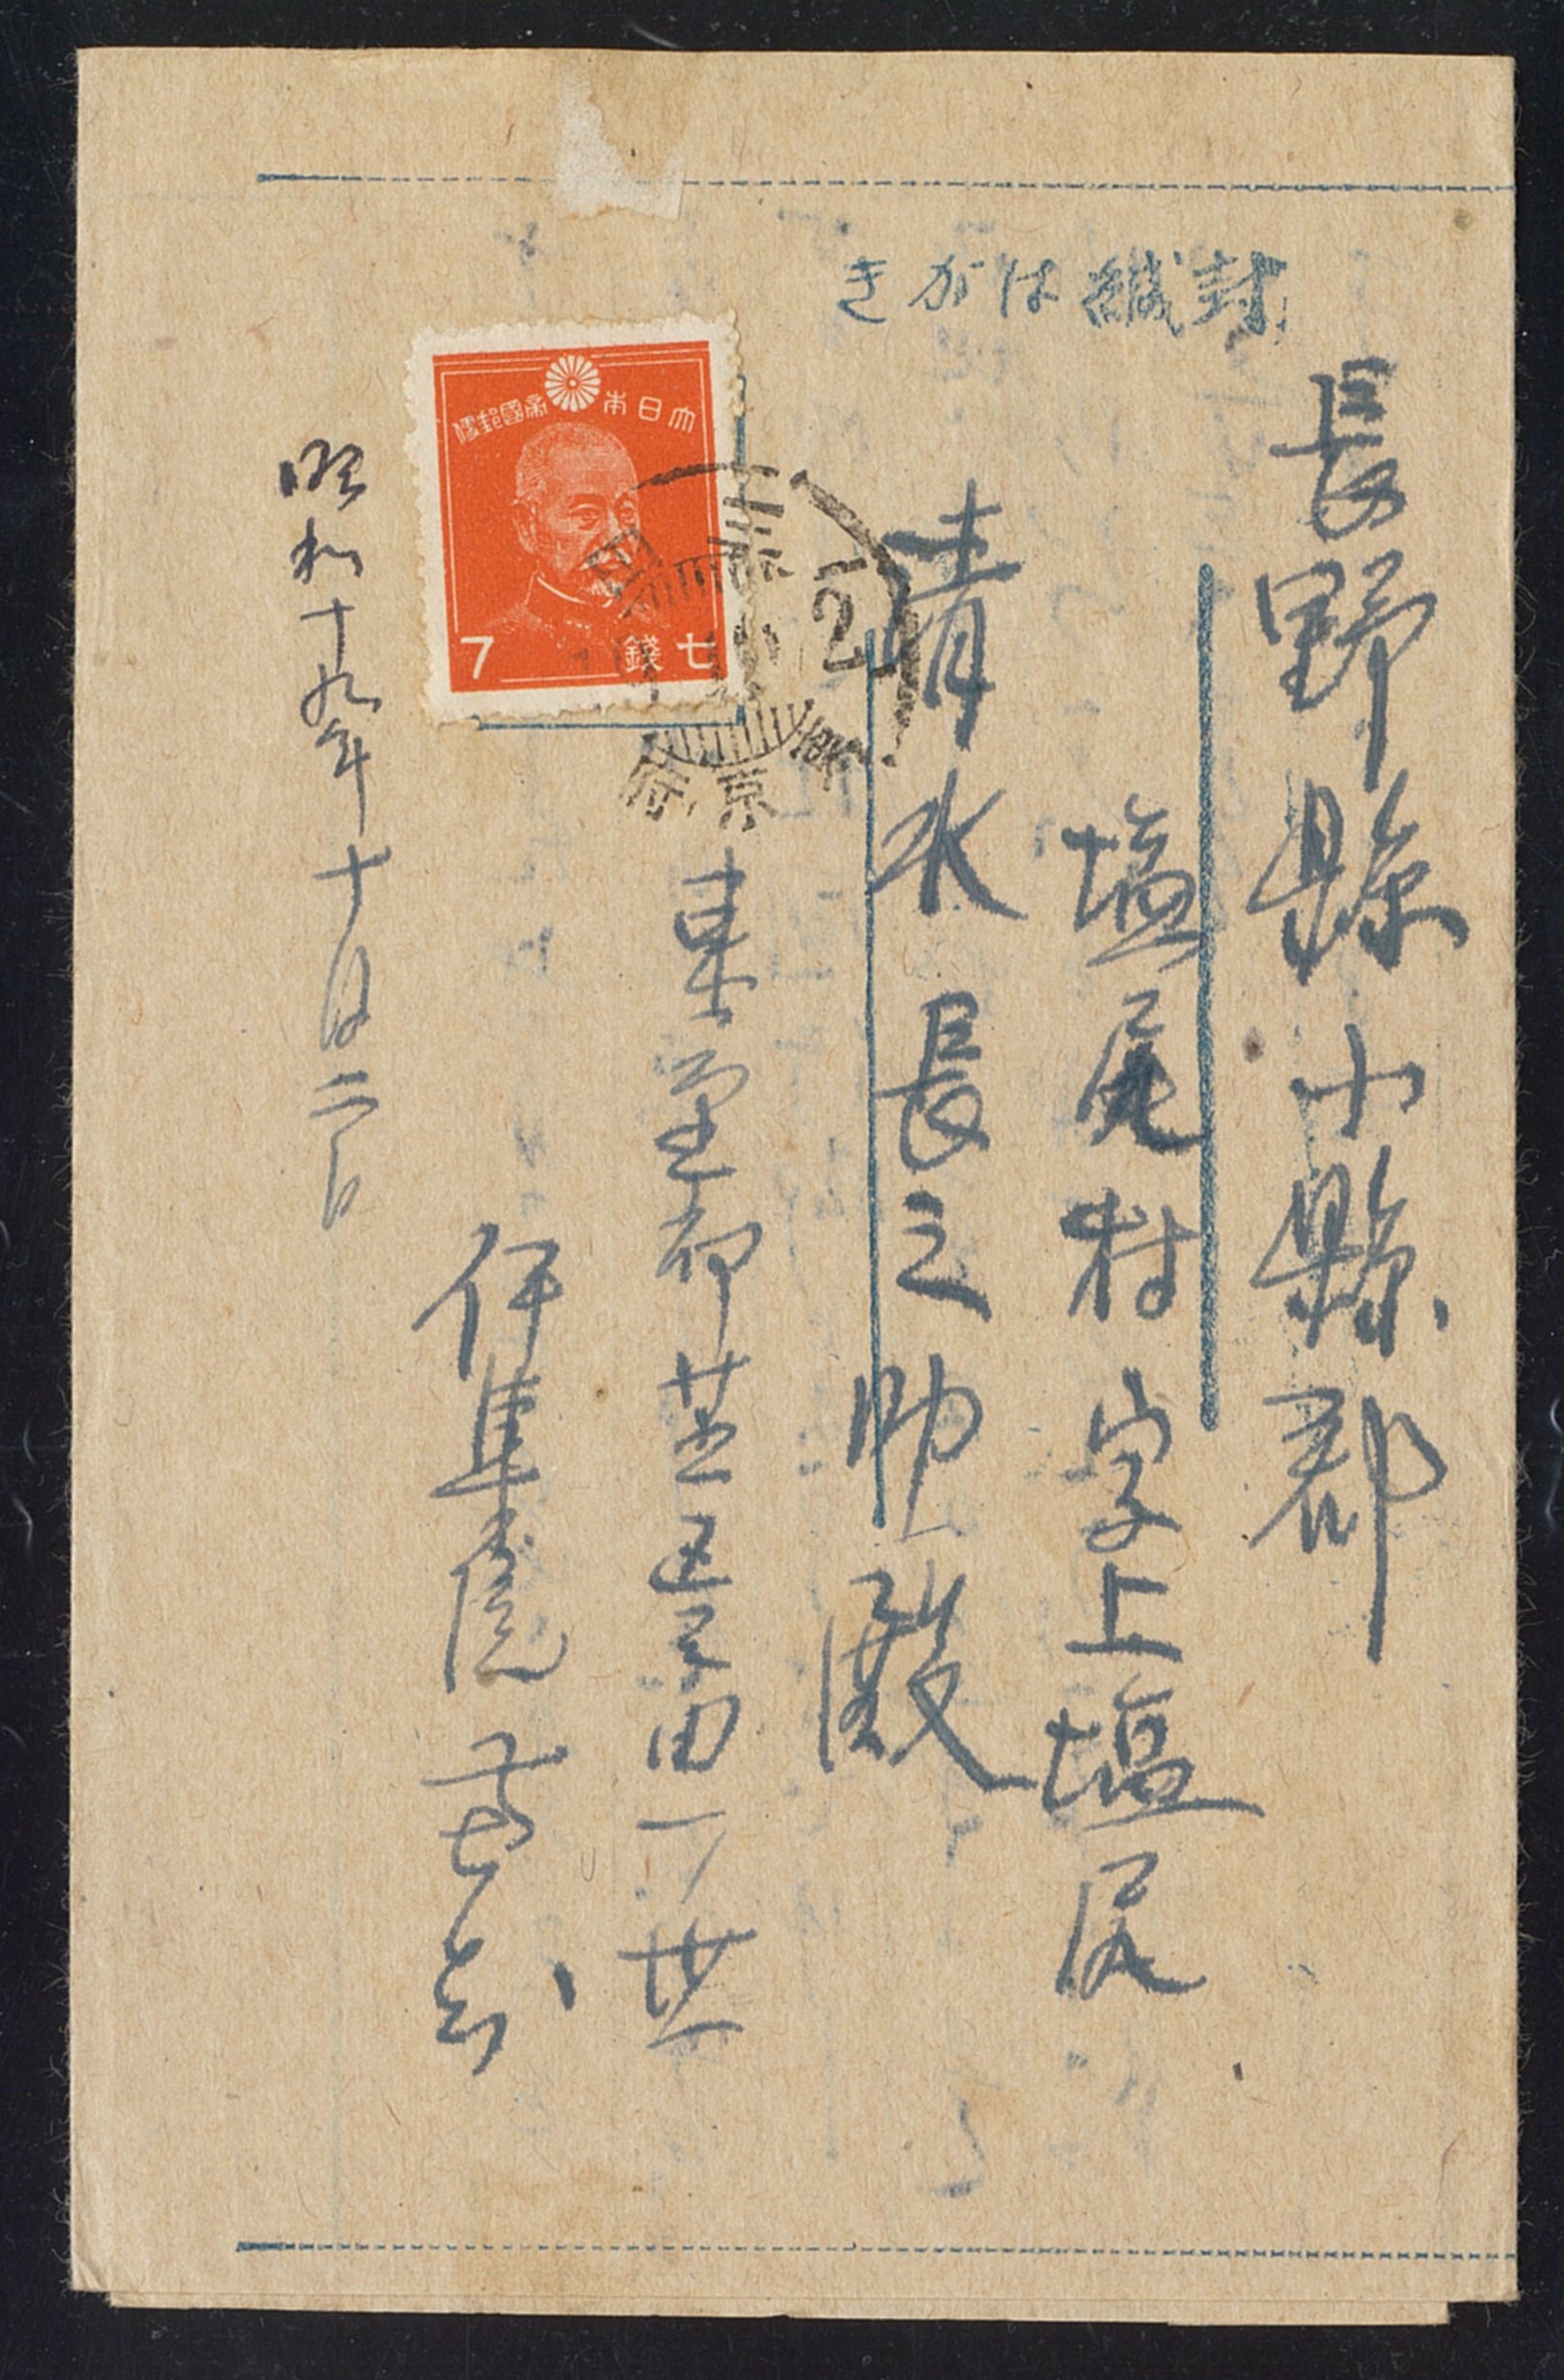 封緘はがき
長野縣小縣郡
塩尻村字上塩尻
清水長之助殿
大日本帝國郵便
七錢
7
東京都芝区三田一ノ廿
伊集院
昭和十九年十月二日